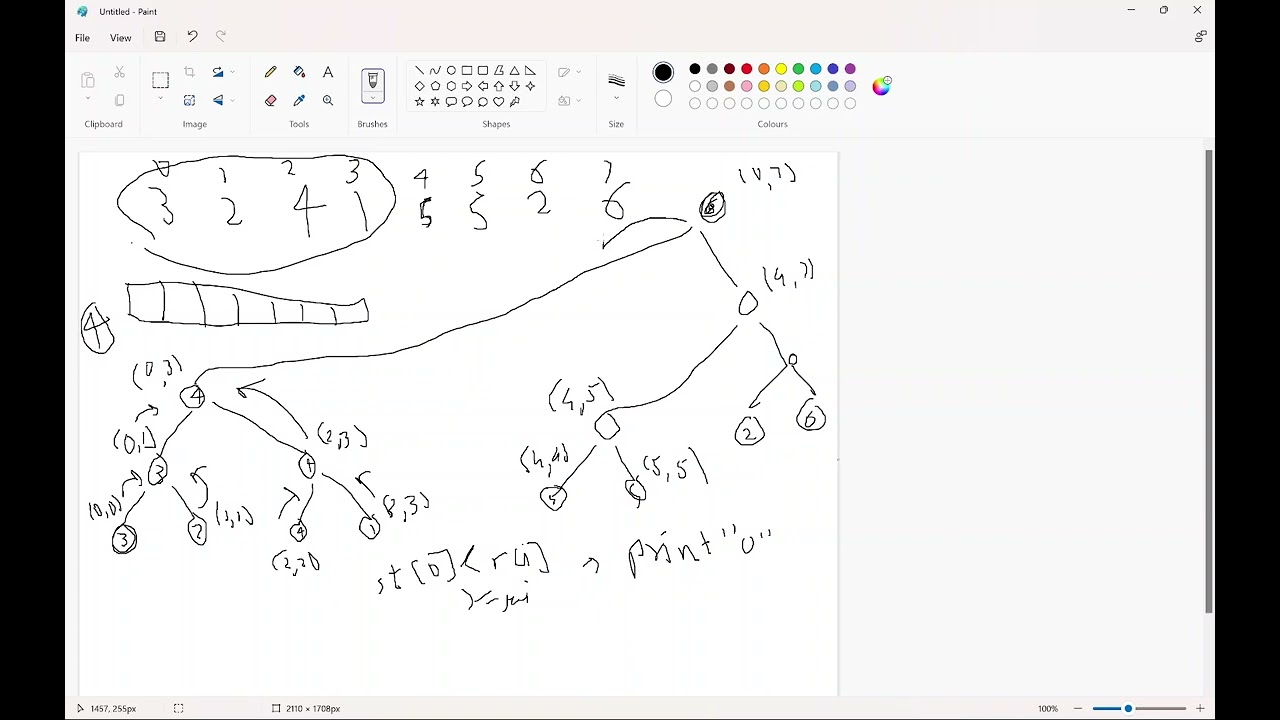 Untitled - Paint
File View
Clipboard Image Tools Brushes Shapes Size Colours
0 1 2 3 4 5 6 7
3 2 4 1 5 5 2 6
(0,7)
(4,7)
4
(0,3)
4
(4,5)
(0,1) (2,3)
3 4
2 6
(4,4) (5,5)
(0,0) (1,1) (3)
3 2 4 1
(2,2)
st[0] < r[i] → print "0"
1457, 255px 2110 × 1708px 100%